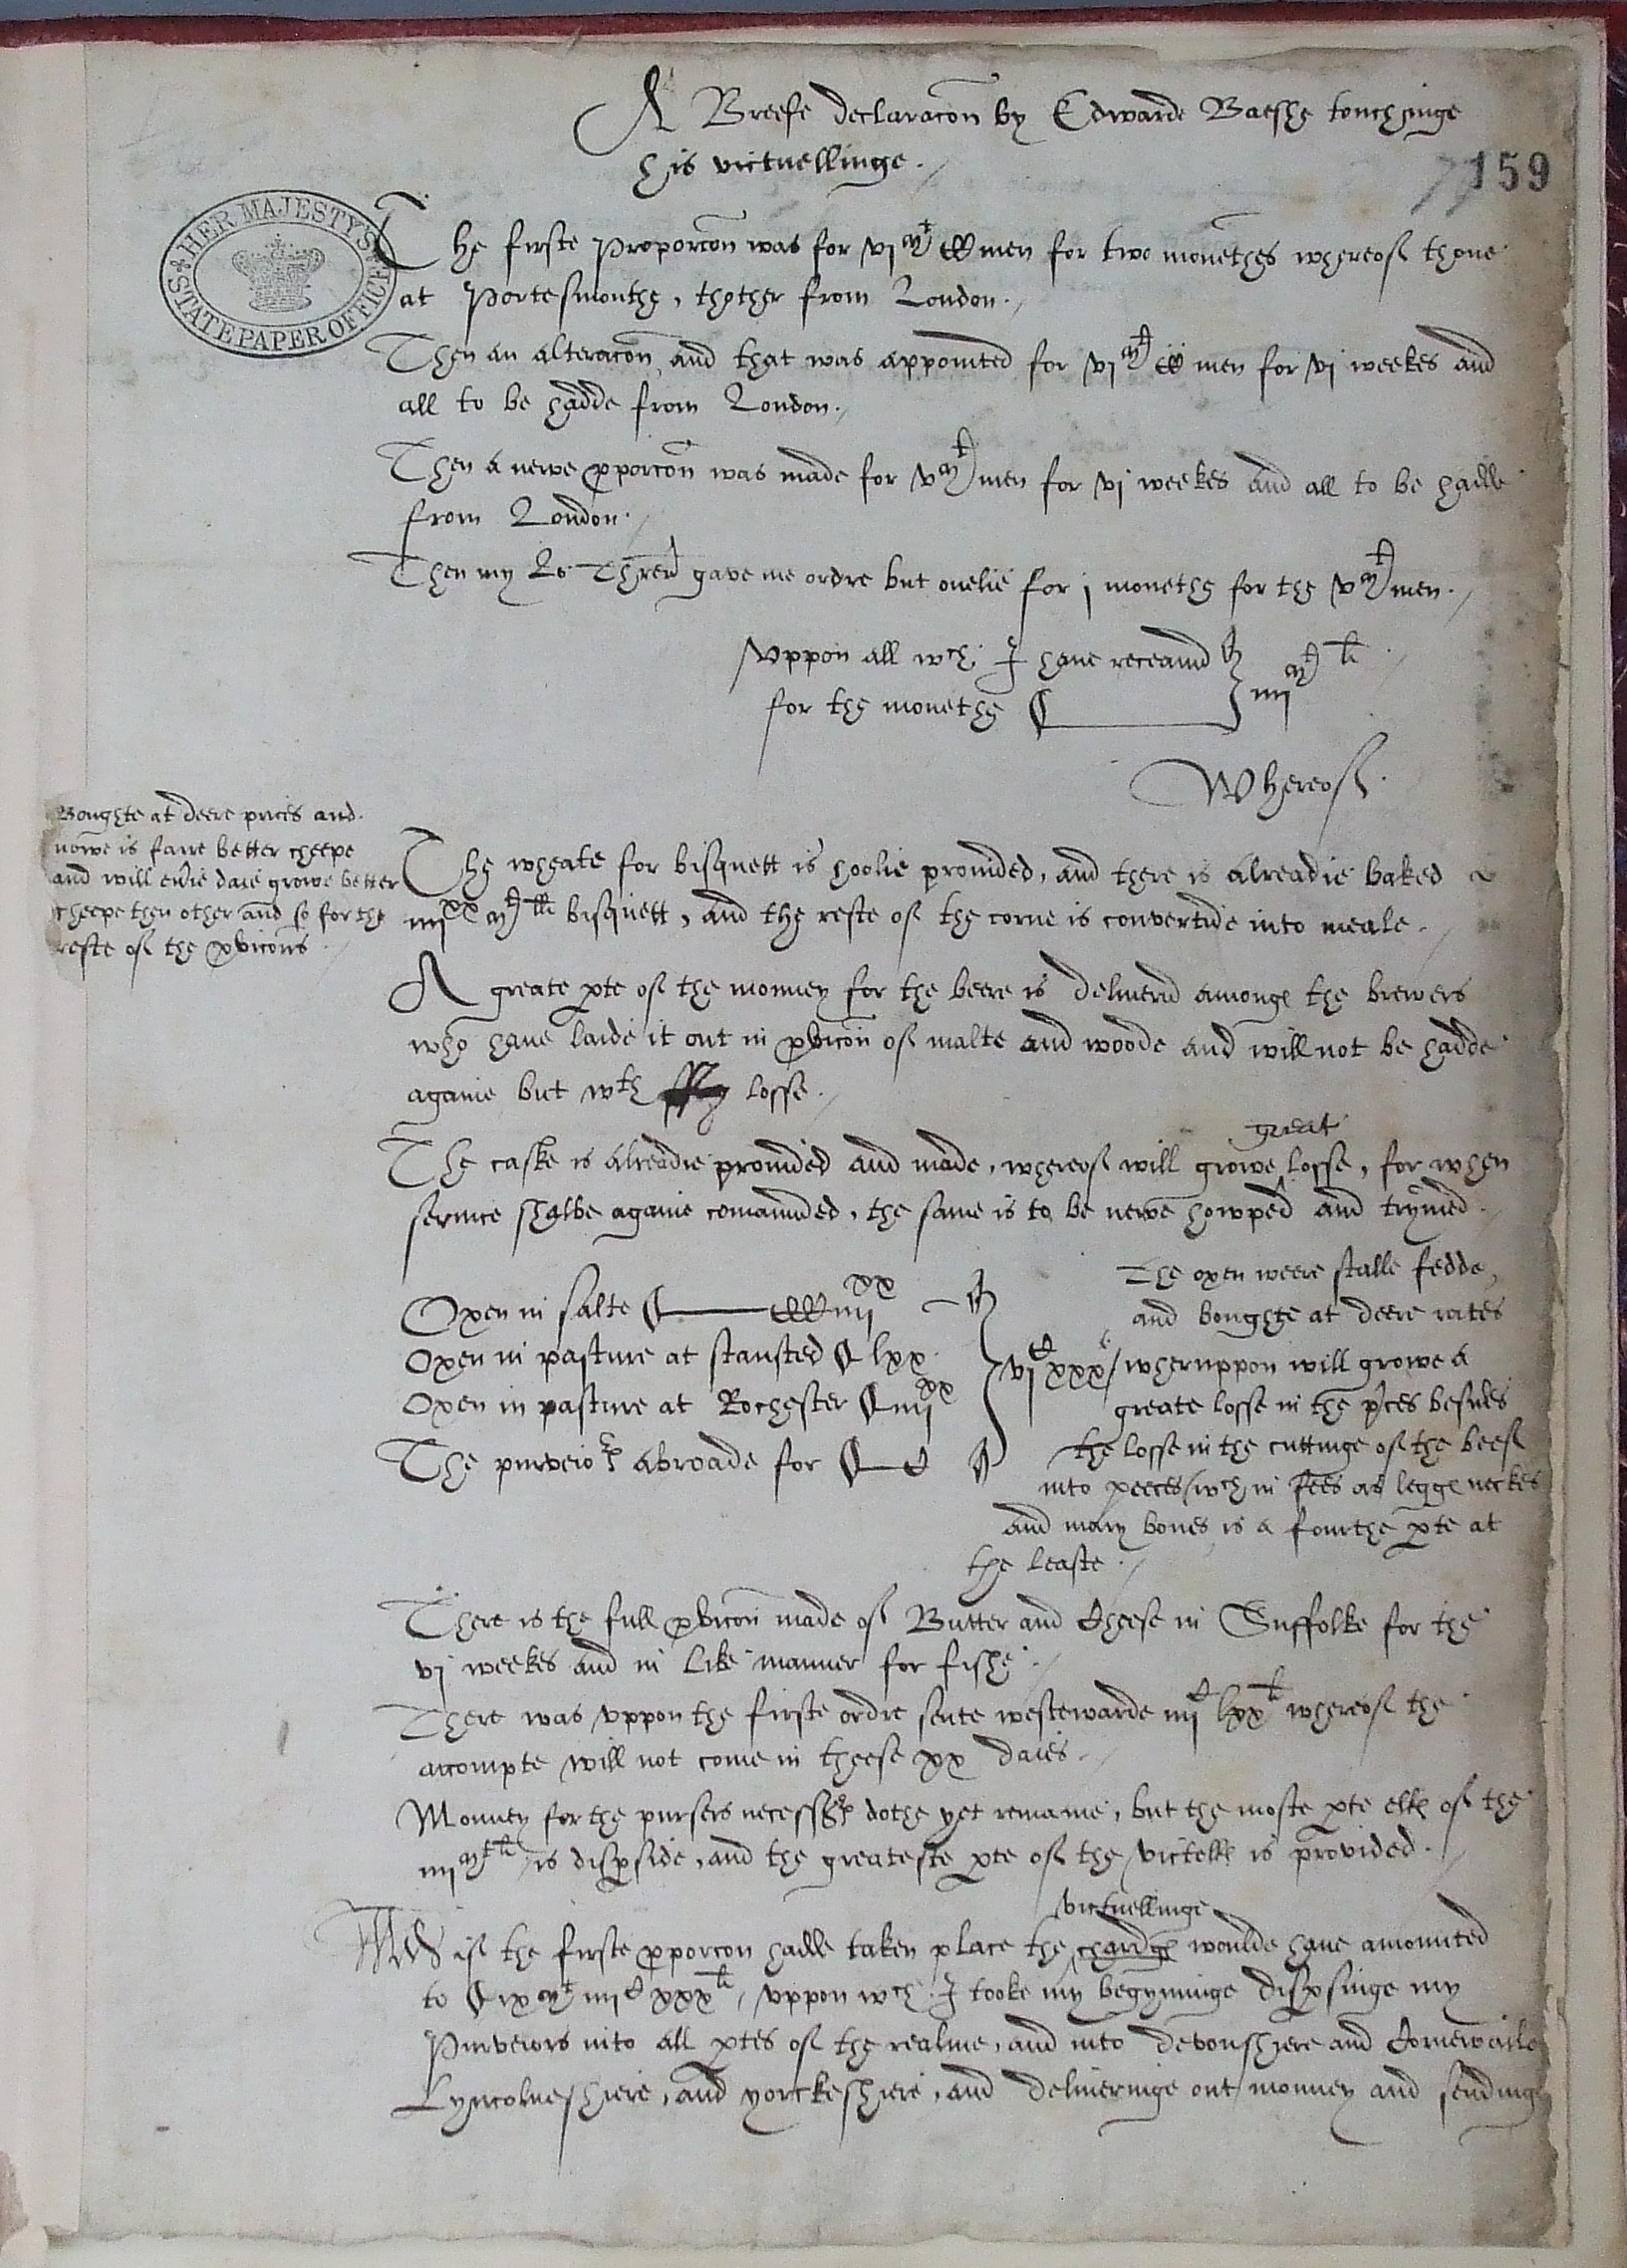 A Breefe declaracon by Edwarde Baeshe touchinge
his victuellinge.
159
HER MAJESTY'S STATE PAPER OFFICE
The firste Proporcon was for vj Mt CCC men for two monethes whereof thone
at Portesmouthe, thother from London.
Then an alteracon, and that was appointed for vj Mt CCC men for vj weekes and
all to be hadde from London.
Then a newe pporcon was made for v Mt men for vj weekes and all to be hadde
from London.
Then my Lo: Threr gave me ordre but onelie for j monethe for the v Mt men.
Vppon all wch I haue receaued
for the monethe
iiij Mt li
Whereof.
Boughte at deere prices and
nowe is farre better cheepe
and will eu'ie daie growe better
cheepe then other and so for the
reste of the pvicons
The wheate for bisquett is hoolie prouided, and there is alreadie baked
iiij xx Mt li bisquett, and the reste of the corne is convertide into meale.
A greate pte of the monney for the beere is deliuerid amonge the brewers
who haue laide it out in pvicon of malte and woode and will not be hadde
againe but wth losse.
great
The caske is alreadie prouided and made, whereof will growe losse, for when
seruice shalbe againe comaunded, the same is to be newe howped and trymed.
Oxen in salte CCC iiij xx
Oxen in pasture at stansted lxx
Oxen in pasture at Rochester iiij xx
The purveiors abroade for C
vj C xxx
The oxen weere stalle fedde,
and boughte at deere rates
wheruppon will growe a
greate losse in the prices besides
the losse in the cuttinge of the beef
into peeces / wch in fees as legges neckes
and mary bones is a fourthe pte at
the leaste.
There is the full pvicon made of Butter and Cheese in Suffolke for the
vj weekes and in like manner for fishe.
There was vppon the firste ordre sente westewarde iiij C lxx li whereof the
accompte will not come in theese xx daies.
Monney for the pursers necessaries dothe yet remaine, but the moste pte elles of the
iiij Mt li is dispside, and the greateste pte of the victelles is provided.
victuellinge
Md if the firste pporcon hadde taken place the chardges woulde haue amounted
to ix Mt iiij C xxx li, vppon wch I tooke my begynninge dispsinge my
Purveiors into all ptes of the realme, and into Devonshiere and Cornewaile
Lyncolneshiere, and yorckeshiere, and deliueringe out monney and sendinge